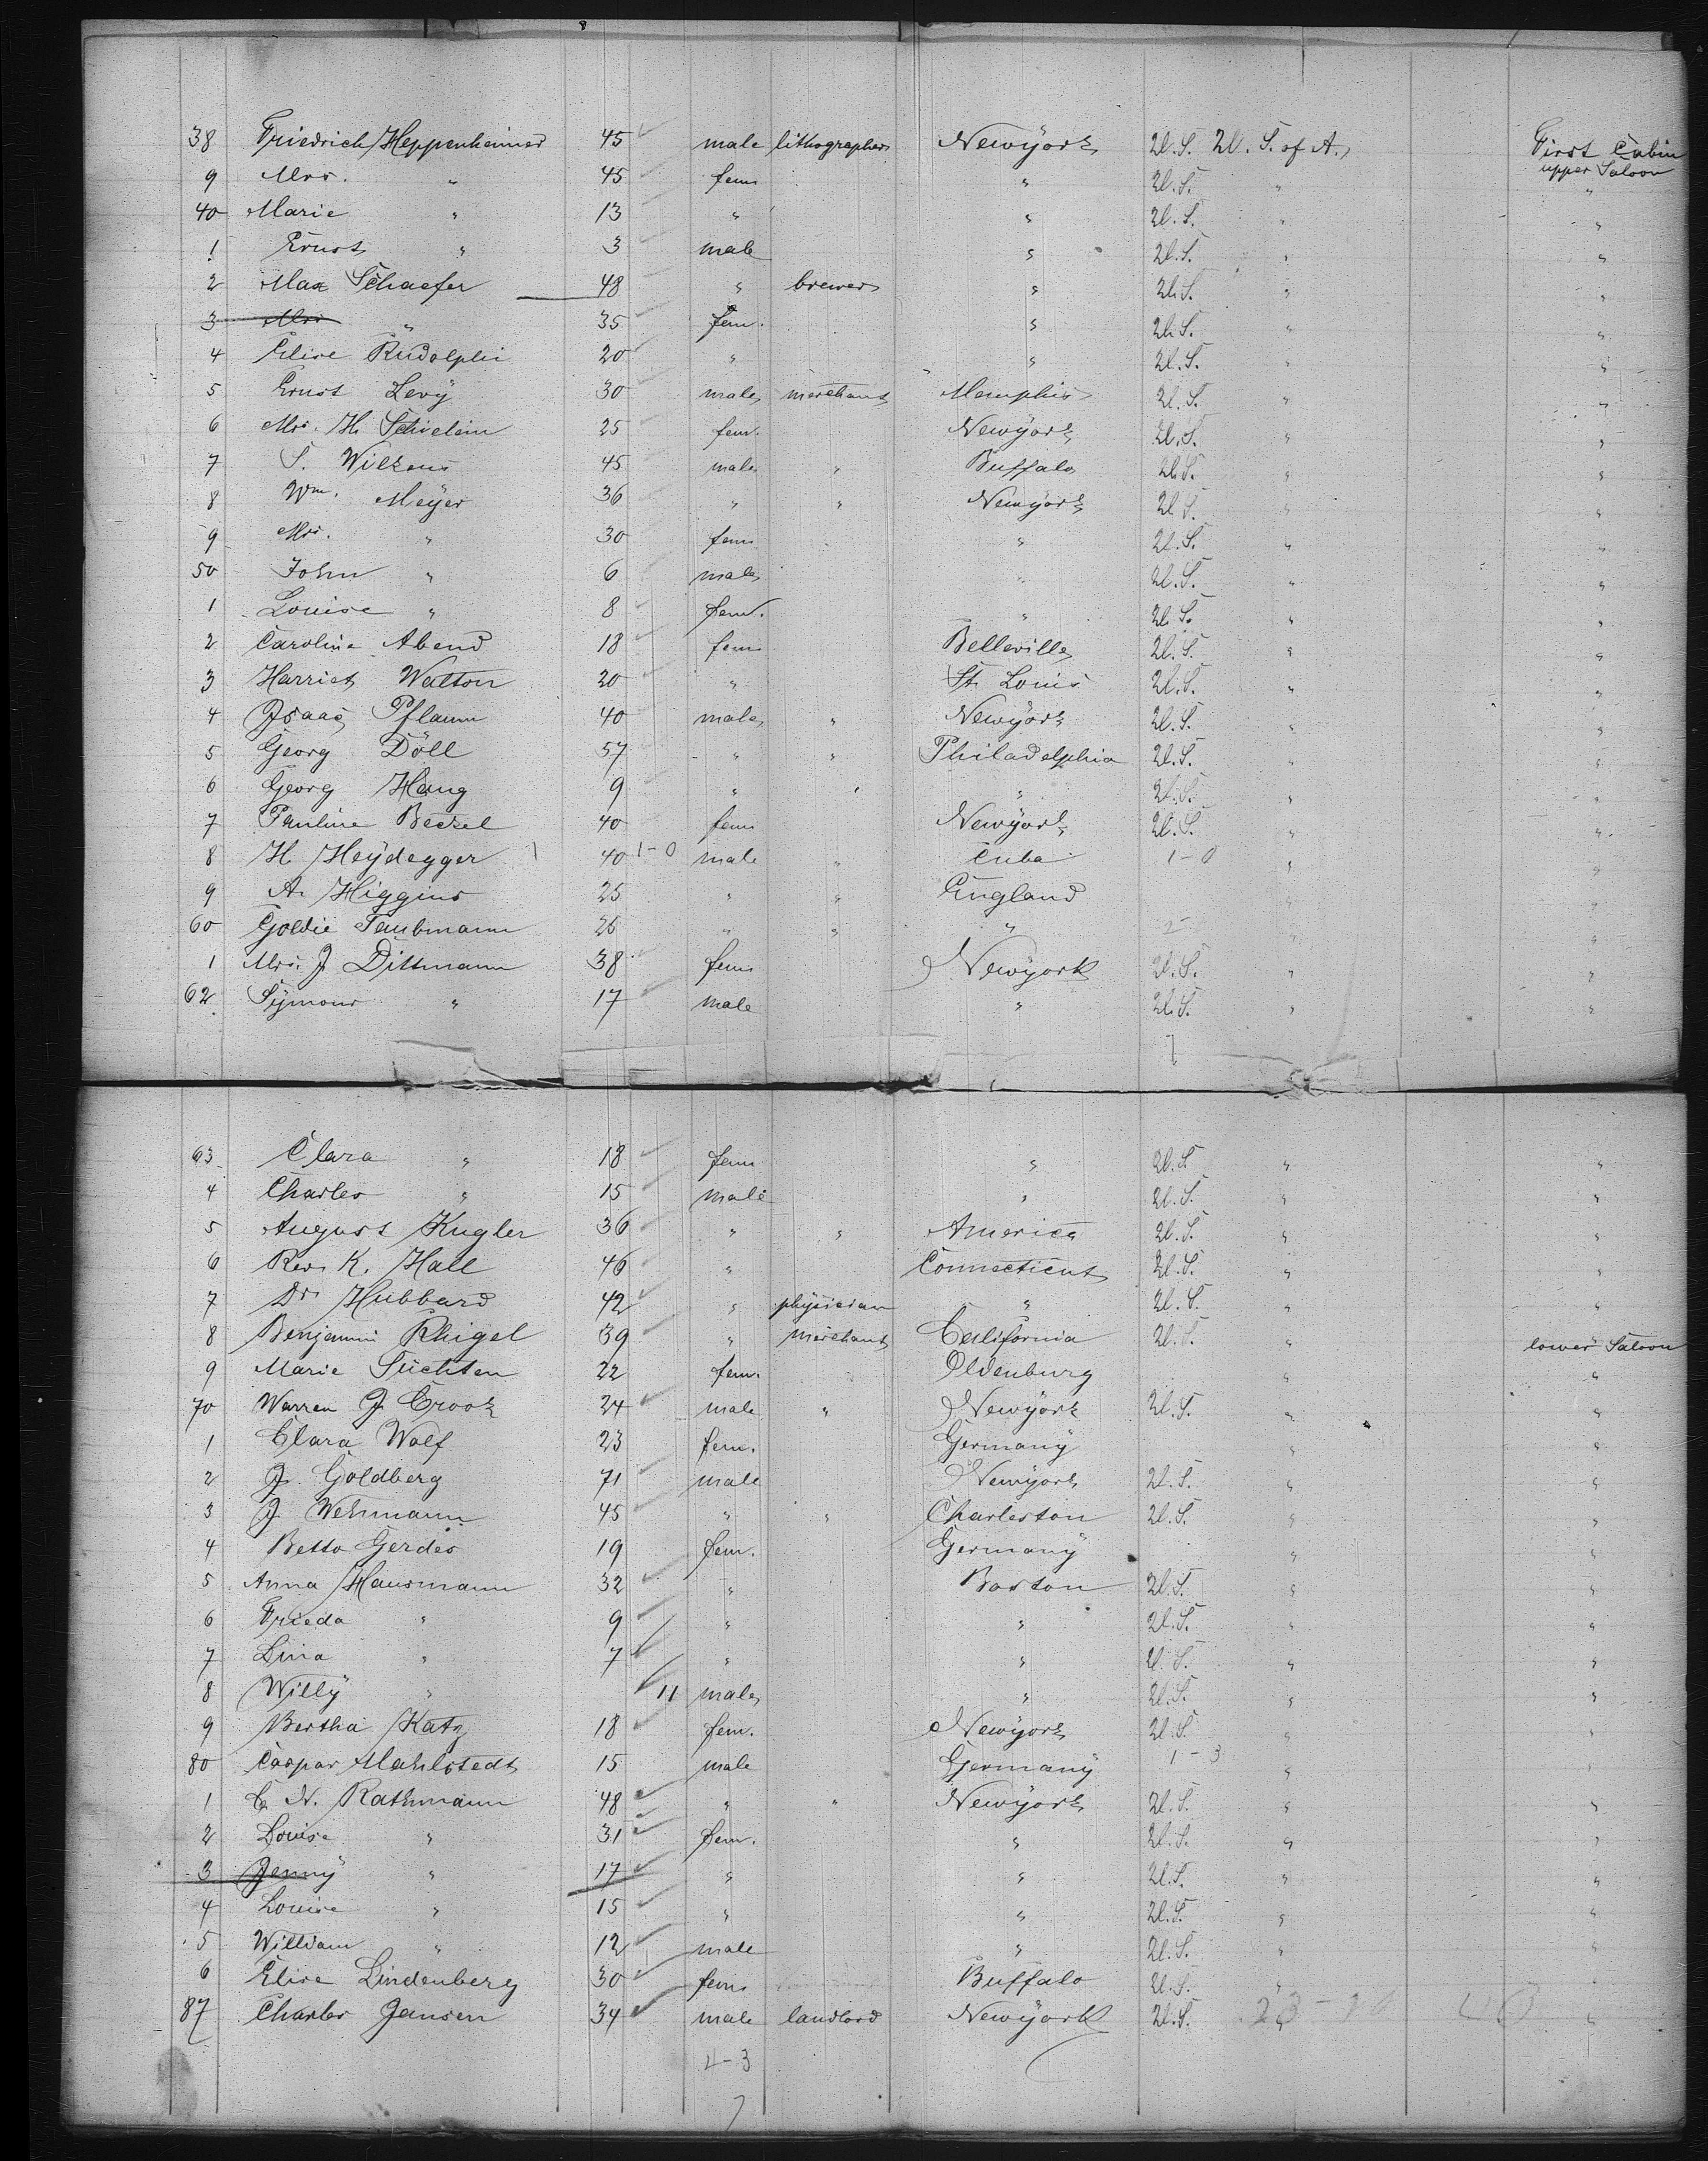 38 Friedrich Heppenheimer 45 male lithographer Newyork U.S. U. S. of A. First Cabin upper Saloon
9 Mrs. " 45 fem " U.S. " "
40 Marie " 13 " " U.S. " "
1 Ernst " 3 male " U.S. " "
2 Max Schaefer 48 " brewer " U.S. " "
3 Mrs " 35 fem. " U.S. " "
4 Elise Rudolphi 20 " " U.S. " "
5 Ernst Levy 30 male merchant Memphis U.S. " "
6 Mrs. H. 25 fem. Newyork U.S. " "
7 S. Wilkens 45 male " Buffalo U.S. " "
8 Wm. Meyer 36 " " Newyork U.S. " "
9 Mrs. " 30 fem " U.S. " "
50 John " 6 male " U.S. " "
1 Louise " 8 fem. " U.S. " "
2 Caroline Abend 18 fem Belleville U.S. " "
3 Harriet Walton 20 " St. Louis U.S. " "
4 Isaac Pflaum 40 male " Newyork U.S. " "
5 Georg Döll 57 " " Philadelphia U.S. " "
6 Georg Haug 9 " " " U.S. " "
7 Pauline Beckel 40 fem Newyork U.S. " "
8 H. Heydegger 40 1-0 male " Cuba 1-0 " "
9 A. Higgins 25 " " England " "
60 Goldie Taubmann 25 " " " 2 " "
1 Mrs. J Dittmann 38 fem Newyork U.S. " "
62 Symour " 17 male " U.S. " "
63 Clara " 18 fem " U.S. " "
4 Charles " 15 male " U.S. " "
5 August Kugler 36 " " America U.S. " "
6 Rev. K. Hall 46 " Connecticut U.S. " "
7 Dr. Hubbard 42 " physician " U.S. " "
8 Benjamin Rhigel 39 " merchant California U.S. " lower Saloon
9 Marie Süchten 22 fem. Oldenburg " "
70 Warren J. Crook 24 male " Newyork U.S. " "
1 Clara Wolf 23 fem. Germany " "
2 J. Goldberg 71 male Newyork U.S. " "
3 J Wehmann 45 " " Charleston U.S. " "
4 Betta Gerdes 19 fem. Germany " "
5 Anna Hausmann 32 " Boston U.S. " "
6 Frieda " 9 " " U.S. " "
7 Lina " 7 " " U.S. " "
8 Willy " 11 male " U.S. " "
9 Bertha Katz 18 fem. Newyork U.S. " "
80 Caspar Mahlstedt 15 male Germany 1-3 " "
1 C. N. Rathmann 48 " " Newyork U.S. " "
2 Louise " 31 fem. " U.S. " "
3 Jenny " 17 " " U.S. " "
4 Louise " 15 " " U.S. " "
5 William " 12 male " U.S. " "
6 Elise Lindenberg 30 fem Buffalo U.S. " "
87 Charles Jansen 34 male landlord Newyork U.S. " "
4-3